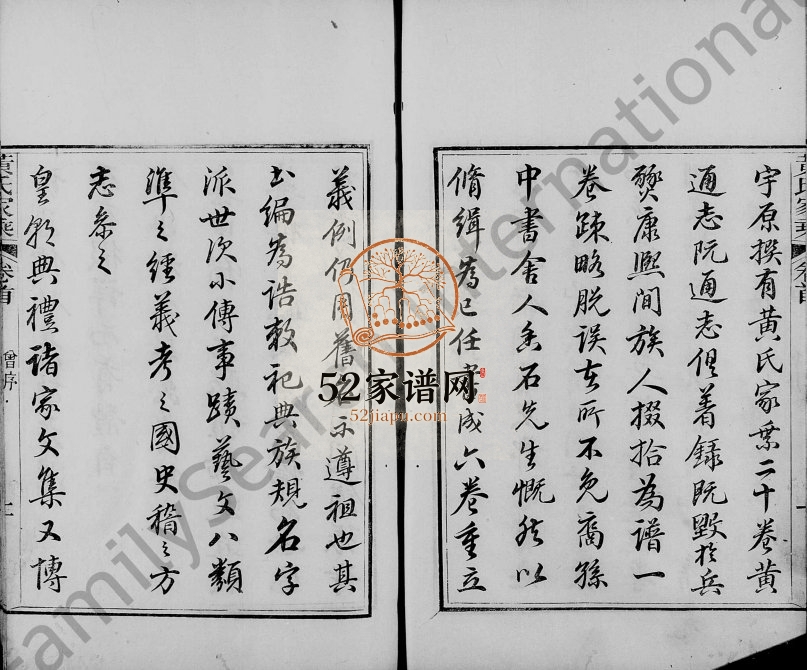 宇原撰有黃氏家乘二十卷黃
通志阮通志俱著錄既毀於兵
燹康熙間族人掇拾為譜一
卷疎略脫誤在所不免裔孫
中書舍人香石先生慨然以
脩緝為己任書成六卷重立
義例仍用舊名示遵祖也其
書編為誥敕祀典族規名字
派世次小傳事蹟藝文八類
準之經義考之國史稽之方
志參之
皇朝典禮諸家文集又博
黃氏家乘
卷首
譜序
52家谱网
52jiapu.com
FamilySearch International